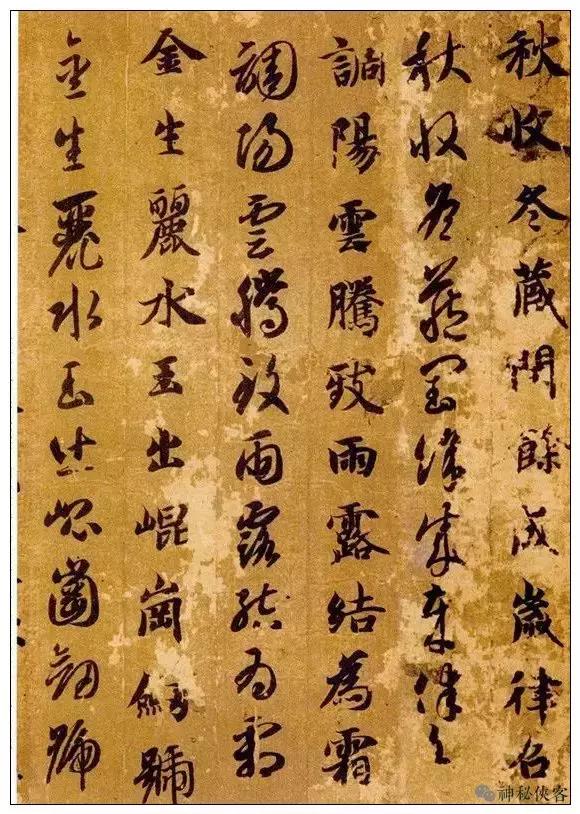 秋收冬藏閏餘成歲律召
秋收冬藏閏餘成歲律召
調陽雲騰致雨露結為霜
調陽雲騰致雨露結為霜
金生麗水玉出崐崗劒號
金生麗水玉出崐崗劒號
神秘俠客